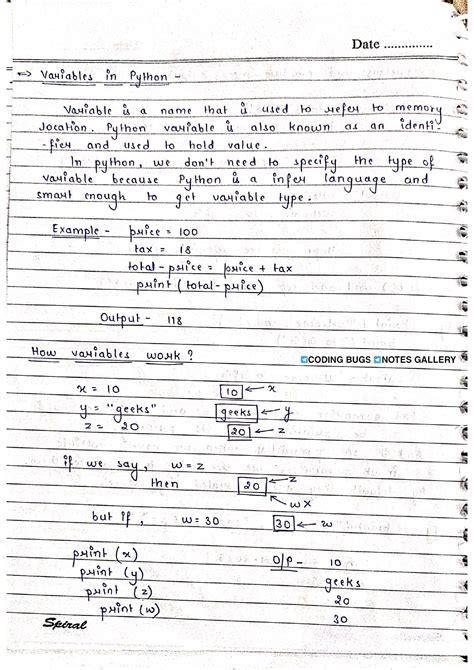 Date ..............
⇒ Variables in Python -
Variable is a name that is used to refer to memory
location. Python variable is also known as an identi-
-fier and used to hold value.
In python, we don't need to specify the type of
variable because Python is a infer language and
smart enough to get variable type.
Example - price = 100
tax = 18
total-price = price + tax
print (total-price)
Output - 118
How variables work ?
◀CODING BUGS ◀NOTES GALLERY
x = 10 10 ← x
y = "geeks" geeks ← y
z = 20 20 ← z
if we say, w = z
then 20 ← z
← w x
but if, w = 30 30 ← w
print (x) O/P - 10
print (y) geeks
print (z) 20
print (w) 30
Spiral